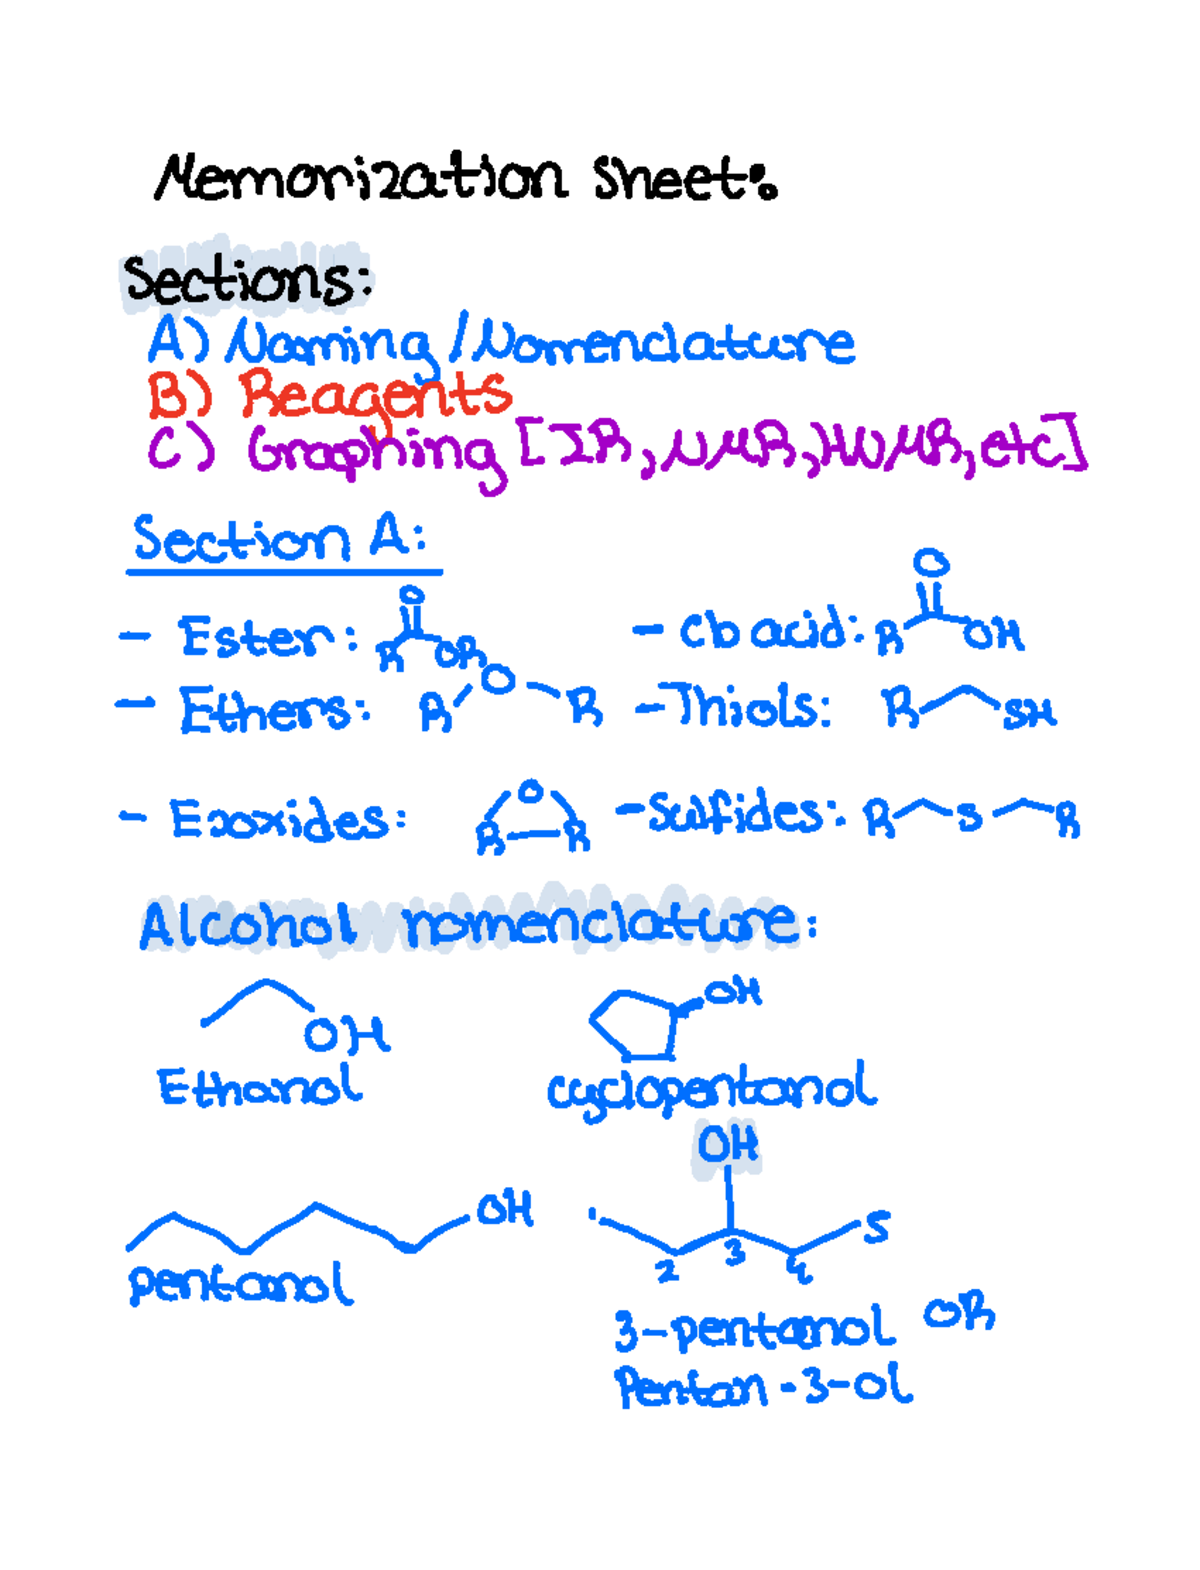 Memorization Sheet:
Sections:
A) Naming/Nomenclature
B) Reagents
C) Graphing [IR, NMR, HNMR, etc]
Section A:
- Ester: R O OR
- Cb acid: R O OH
- Ethers: R O R
- Thiols: R SH
- Epoxides: O R R
- Sulfides: R S R
Alcohol nomenclature:
OH
OH
Ethanol
cyclopentanol
OH
OH
1 2 3 4 5
pentanol
3-pentanol OR
Pentan-3-ol